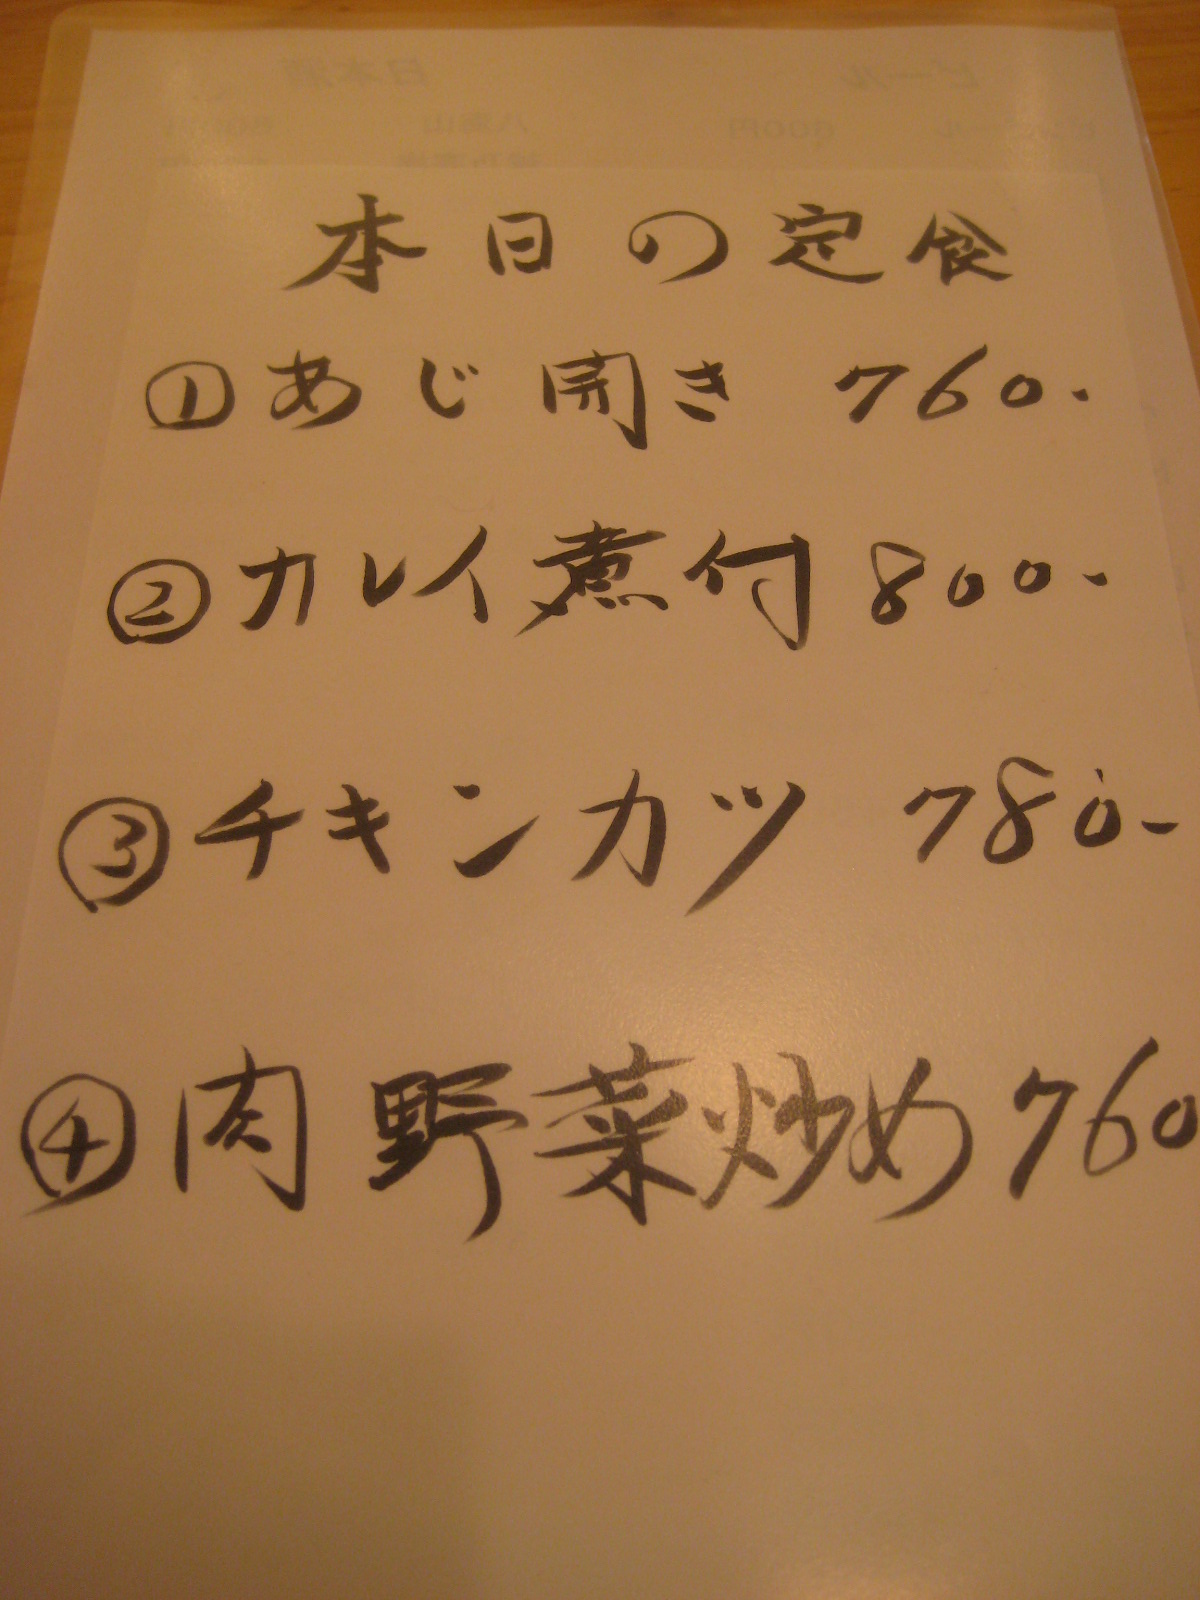 本日の定食
①あじ開き 760-
②カレイ煮付 800-
③チキンカツ 780-
④肉野菜炒め 760